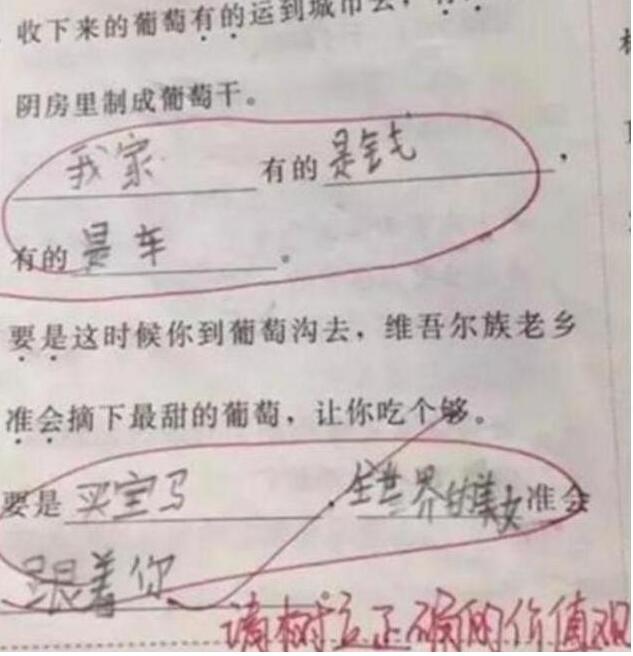 收下来的葡萄有的运到城市去，
阴房里制成葡萄干。
我家 有的 是钱 ，
有的 是车 。
要是这时候你到葡萄沟去，维吾尔族老乡
准会摘下最甜的葡萄，让你吃个够。
要是 买宝马 ，全世界的美女 准会
跟着你
请树立正确的价值观